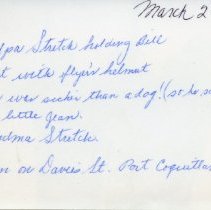 March 2
lpa Stretch holding Bill
t with flyer's helmet
ever sicker than a dog! (so he s
little Jean.
dma Stretch
on Davies St. Port Coquitla